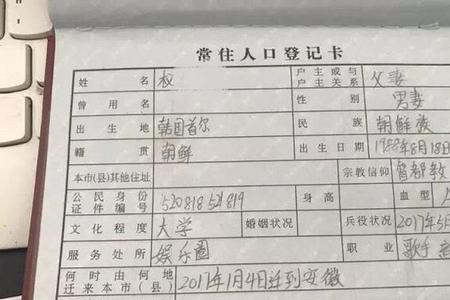 常住人口登记卡
姓名 权 户主或与户主关系 父妻
曾用名 性别 男妻
出生地 韩国首尔 民族 朝鲜族
籍贯 朝鲜 出生日期 1988年8月18日
本市(县)其他住址 宗教信仰
公民身份证件编号 身高 血型
文化程度 大学 婚姻状况 兵役状况 2017年5月
服务处所 娱乐圈 职业 歌手
何时由何地迁来本市(县) 2017年1月4日迁到安徽